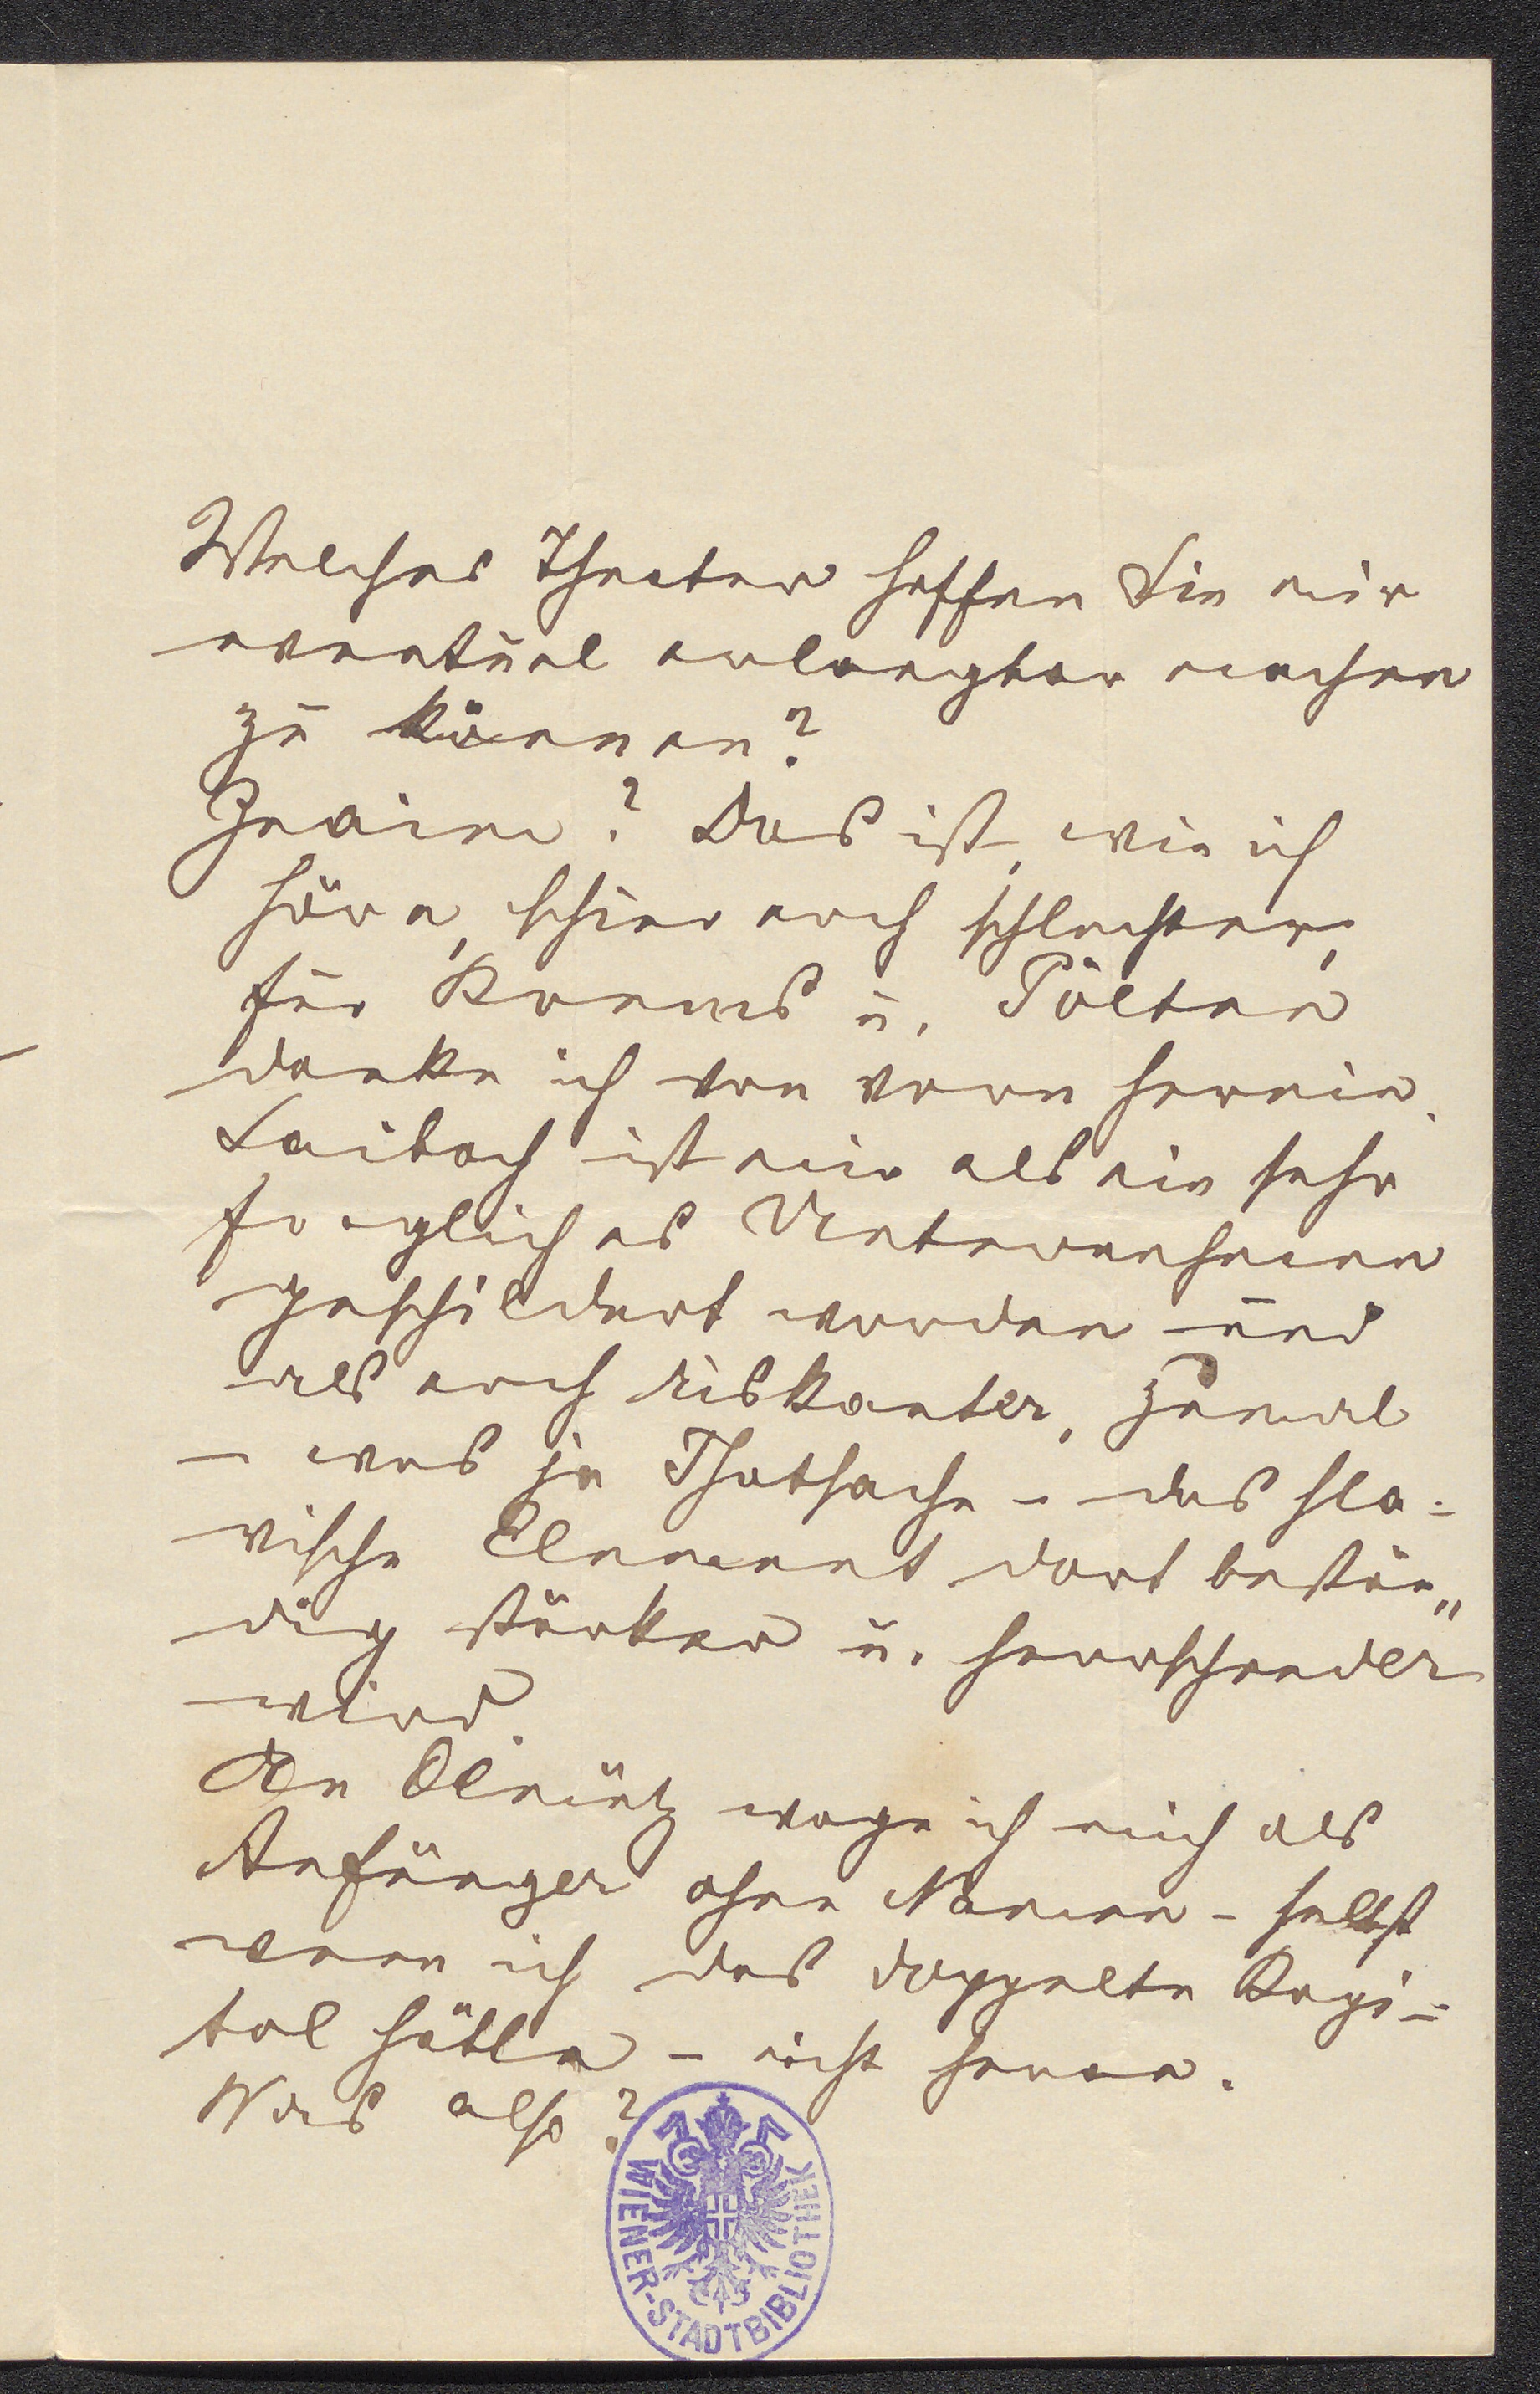 Welches Theater hoffen Sie mir
eventuel erlangbar machen
zu können?
Znaim? Das ist, wie ich
höre, schier noch schlechter,
für Krems u. Pölten
danke ich von vorn herein.
Laibach ist mir als ein sehr
fragliches Unternehmen
geschildert worden und
als noch riskanter, zumal
– was ja Thatsache – das sla=
vische Element dort bestän„
dig stärker u. herrschender
wird.
An Olmütz wage ich mich als
Anfänger ohne Namen – selbst
wenn ich das doppelte Kapi=
tal hätte – nicht heran.
Was also?
WIENER-STADTBIBLIOTHEK